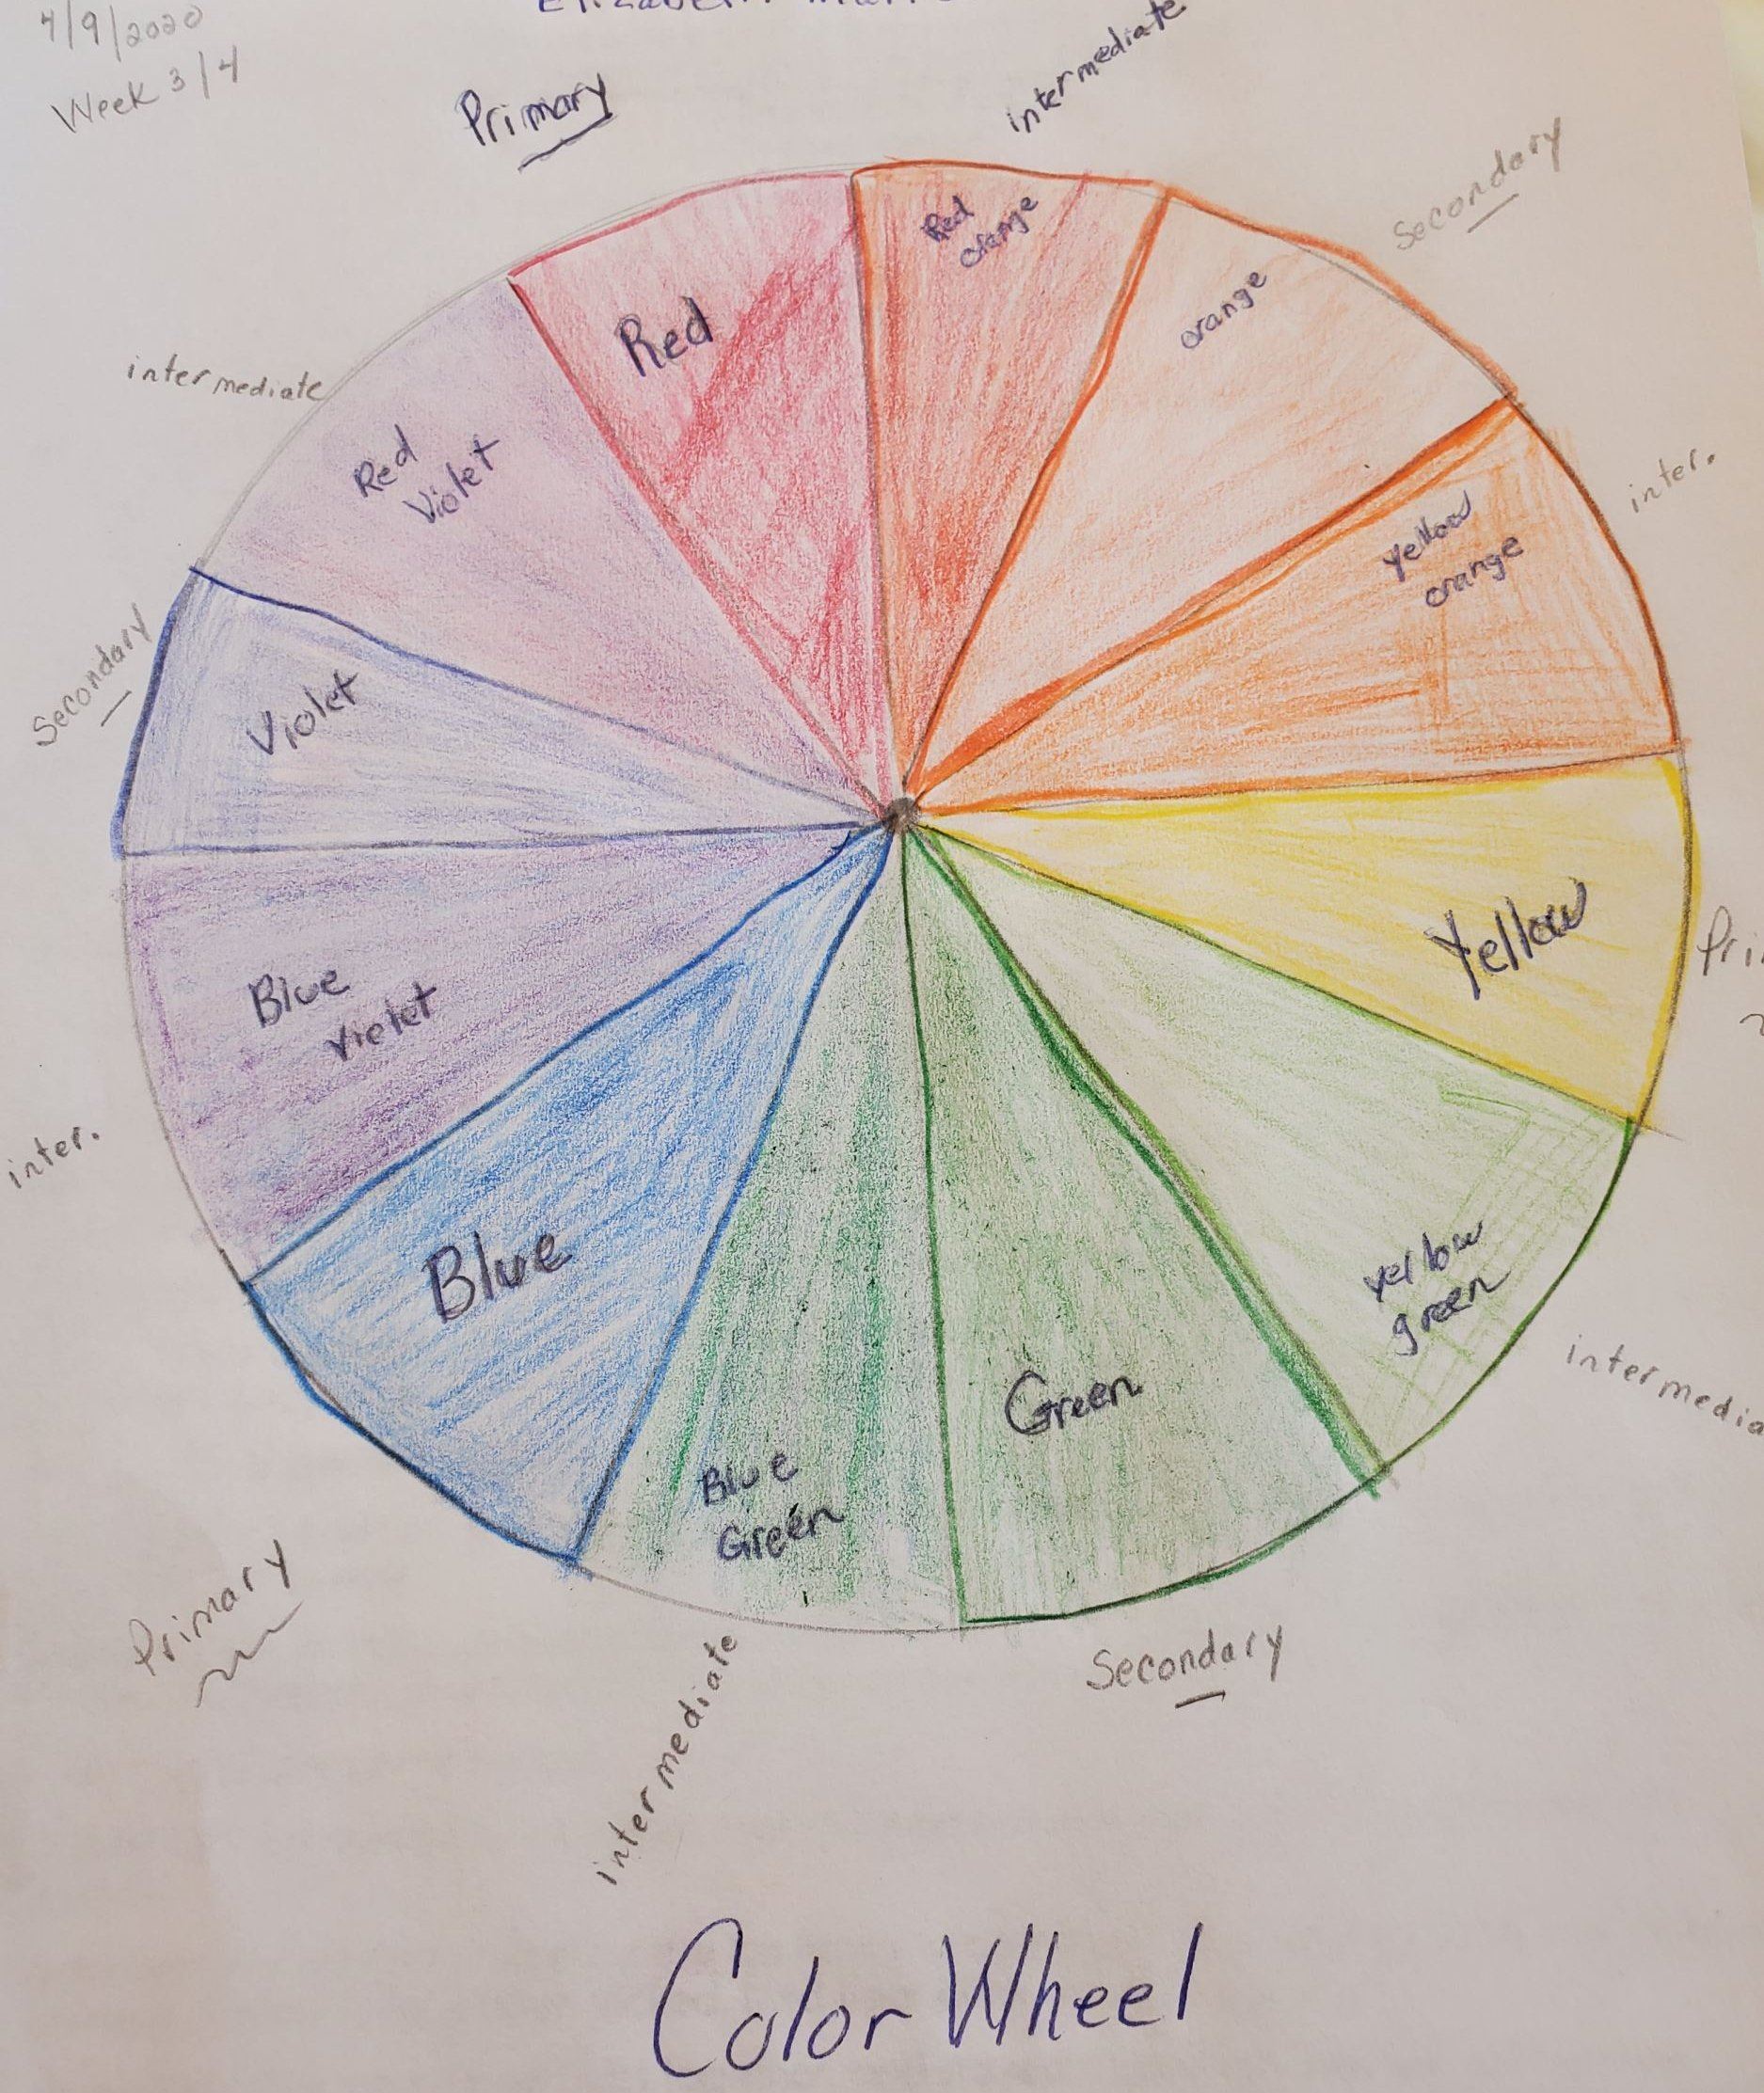 4/9/2020
Week 3/4
Elizabeth
Primary
intermediate
Secondary
inter.
Pri
intermedia
Secondary
intermediate
Primary
inter.
Secondary
intermediate
Red
Red
orange
orange
Yellow
orange
Yellow
yellow
green
Green
Blue
Green
Blue
Blue
Violet
Violet
Red
Violet
Color Wheel